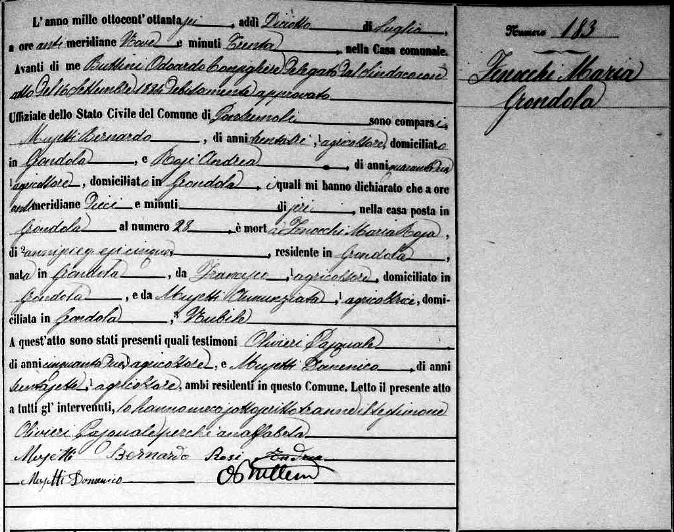 Numero 183
Tenocchi Maria
Grondola
L'anno mille ottocent'ottantasei, addì Diciotto di Luglio
a ore antimeridiane Nove e minuti Trenta, nella Casa comunale.
Avanti di me Buttini Odoardo Consigliere Delegato dal Sindaco con
atto del 16 Settembre 1884 debitamente approvato
Uffiziale dello Stato Civile del Comune di Pontremoli sono comparsi
Musetti Bernardo, di anni trentatre, agricoltore, domiciliato
in Grondola, e Rosi Andrea di anni
agricoltore, domiciliato in Grondola, i quali mi hanno dichiarato che a ore
antimeridiane Dieci e minuti di jeri, nella casa posta in
Grondola al numero 28, è morta Tenocchi Maria Rosa,
di anni, residente in Grondola,
nata in Grondola, da Francesco, agricoltore, domiciliato in
Grondola, e da Musetti Annunziata, agricoltrice, domi-
ciliata in Grondola, Nubile
A quest'atto sono stati presenti quali testimoni Olivieri Pasquale
di anni, agricoltore, e Musetti Domenico, di anni
trentasette, agricoltore, ambi residenti in questo Comune. Letto il presente atto
a tutti gl' intervenuti, lo hanno meco sottoscritto tranne il testimone
Olivieri Pasquale perchè analfabeta
Musetti Bernardo Rosi Andrea
Musetti Domenico